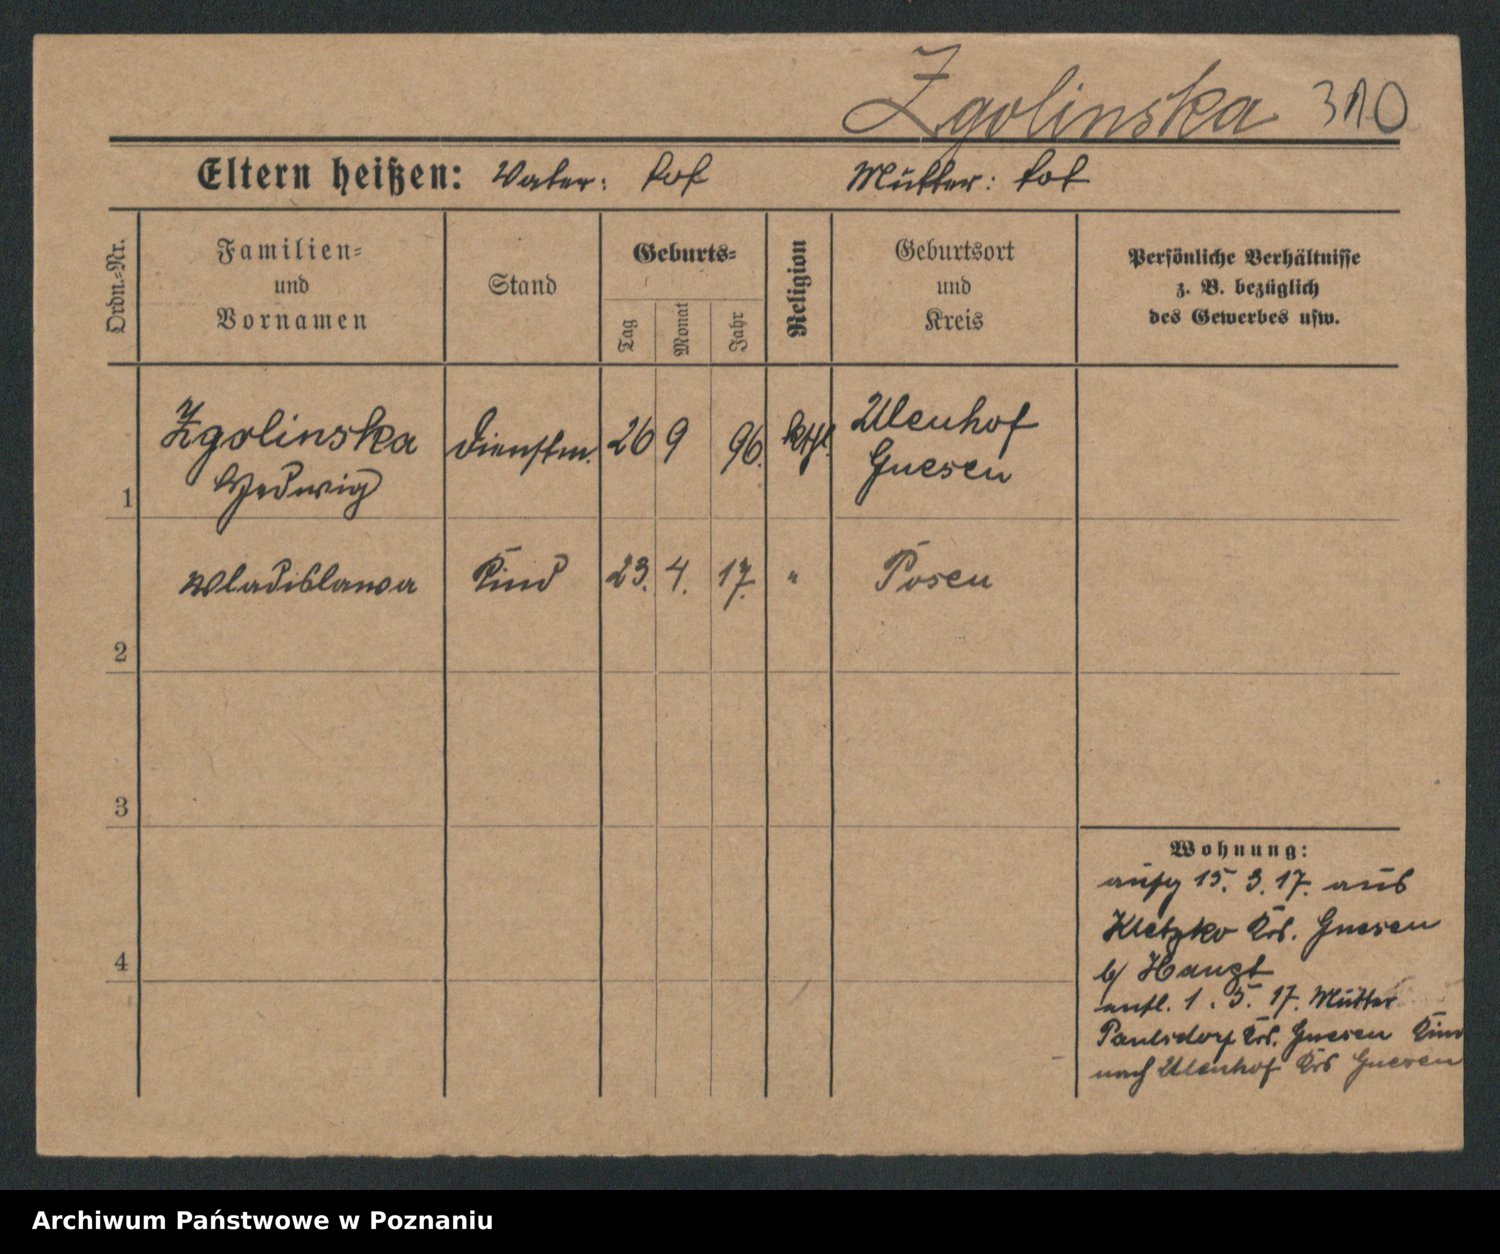 Zgolinska 310
Eltern heißen: Vater: tot Mutter: tot
Ordn.=Nr.
Familien=
und
Vornamen
Stand
Geburts=
Tag
Monat
Jahr
Religion
Geburtsort
und
Kreis
Persönliche Verhältnisse
z. B. bezüglich
des Gewerbes usw.
1 Zgolinska Dienstm. 26 9 96. kthl. Ulenhof
Hedwig Gnesen
2 Wladislawa Kind 23. 4. 17. " Posen
3
4
Wohnung:
aufg 15. 3. 17. aus
Kletzko Krs. Gnesen
b/
entl. 1. 5. 17. Mutter
Paulsdorf Krs. Gnesen Kind
nach Ulenhof Krs Gnesen
Archiwum Państwowe w Poznaniu